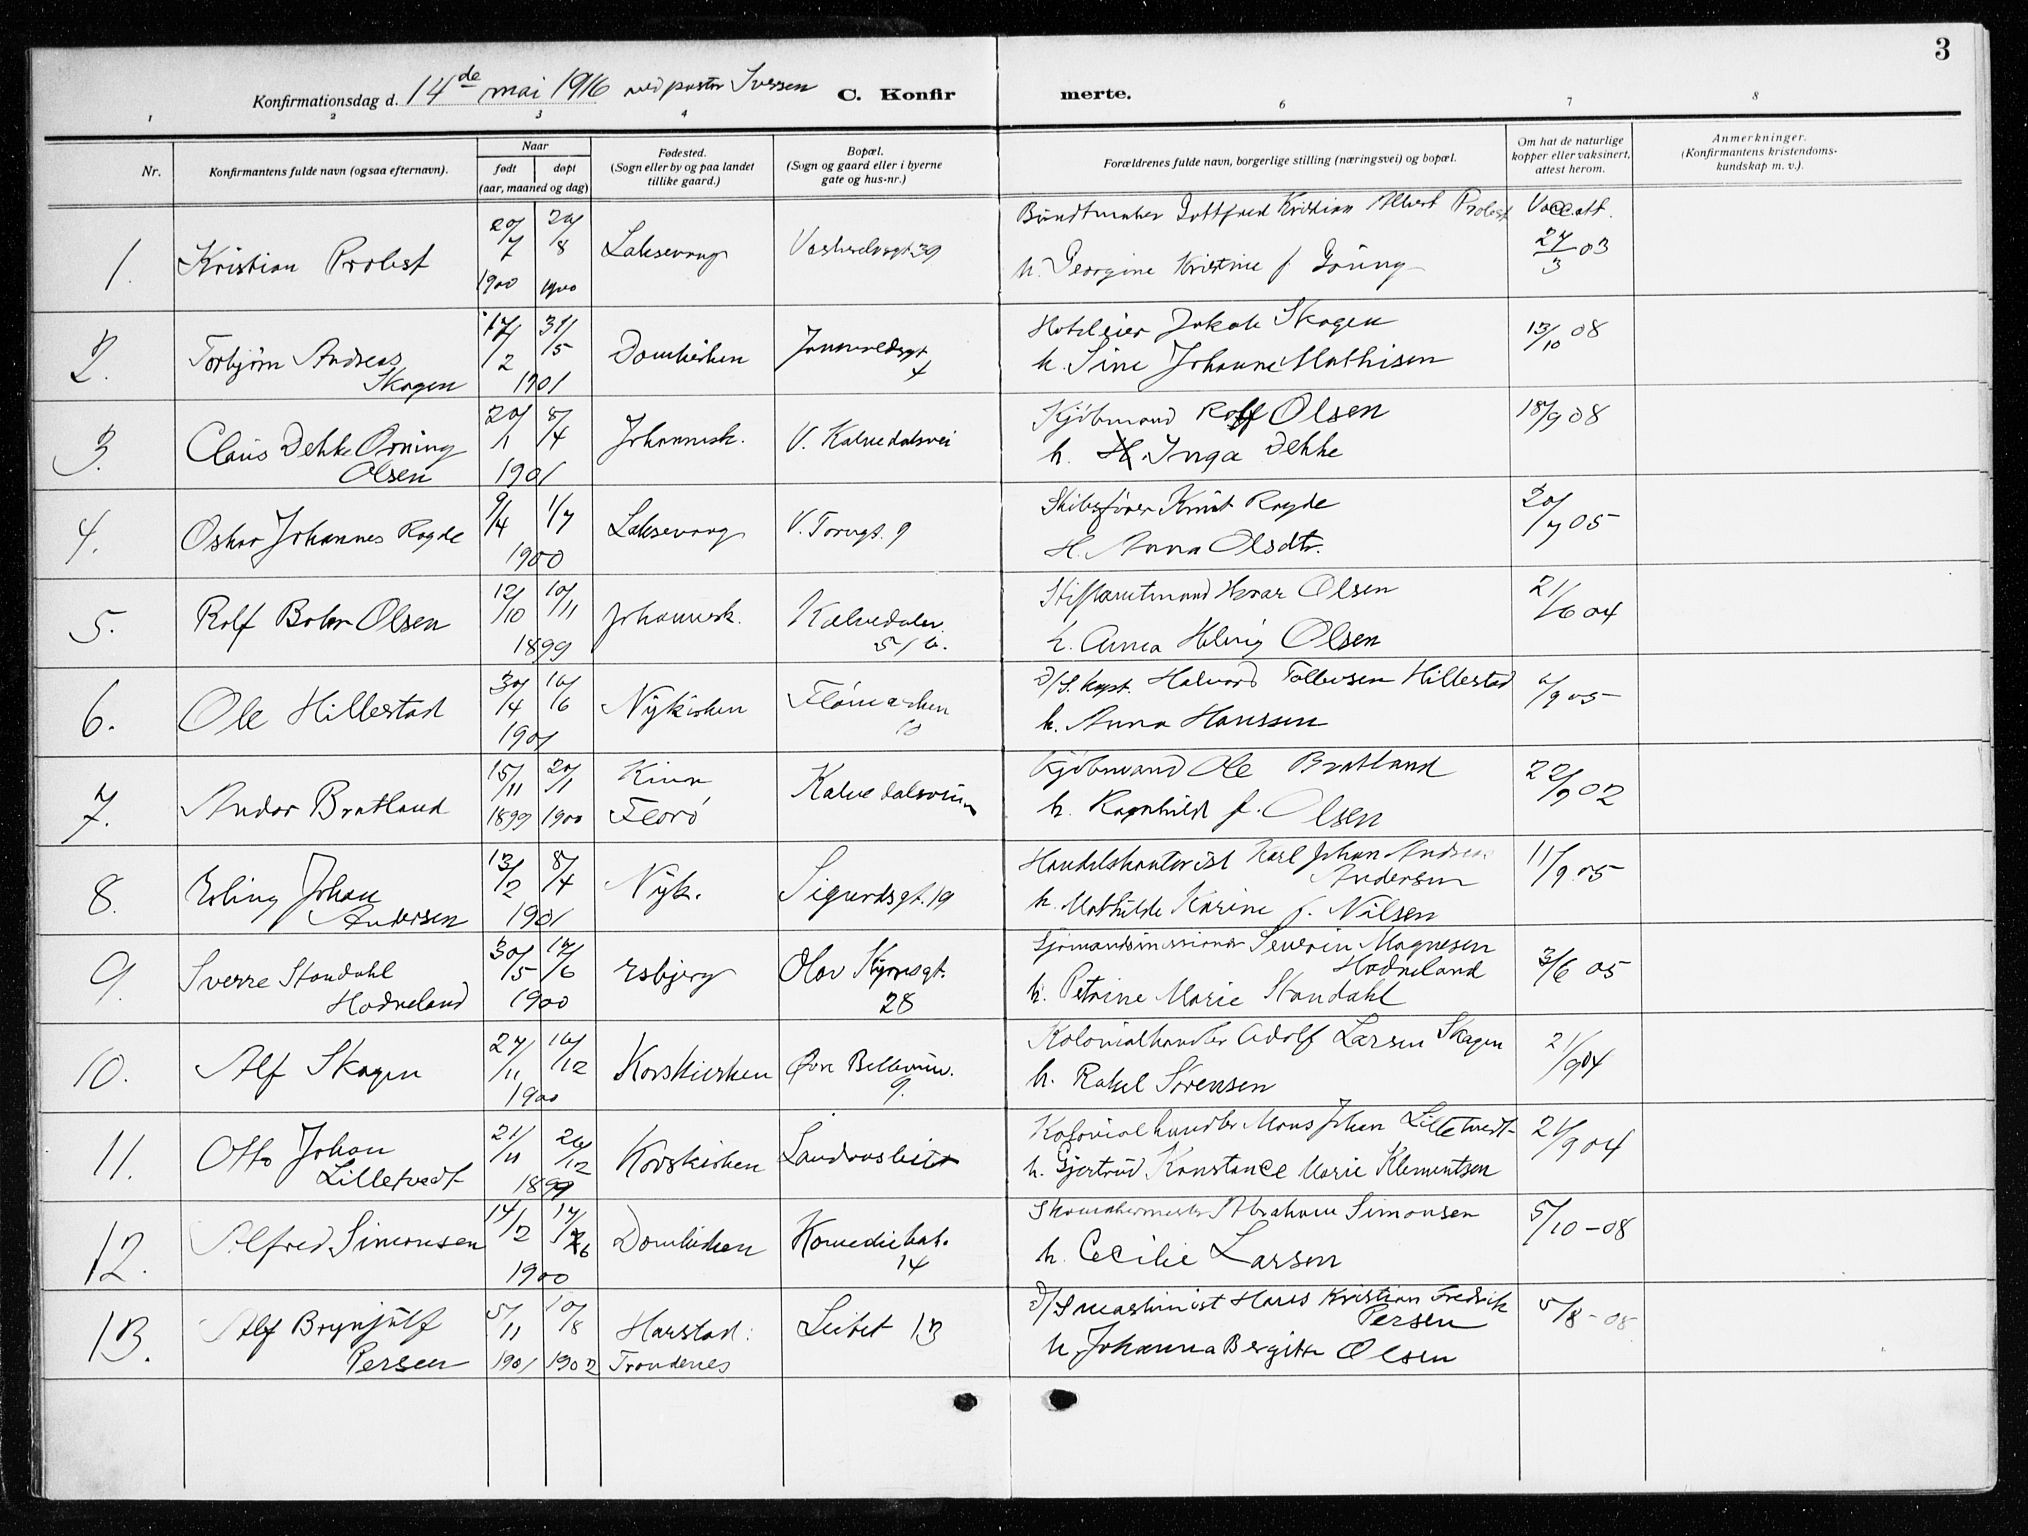 3
Konfirmationsdag d. 14de mai 1916 ved pastor Iversen C. Konfirmerte.
1 2 3 4 6 7 8
Nr. Konfirmantens fulde navn (ogsaa efternavn). Naar født døpt (aar, maaned og dag) Fødested. (Sogn eller by og paa landet tillike gaard.) Bopæl. (Sogn og gaard eller i byerne gate og hus-nr.) Forældrenes fulde navn, borgerlige stilling (næringsvei) og bopæl. Om hat de naturlige kopper eller vaksinert, attest herom. Anmerkninger. (Konfirmantens kristendomskundskap m. v.).
1. Kristian Probst 20/7 1900 26/8 1900 Laksevaag 39 Buntmaker Gottfred Kristian Albert Probst Vaccatt. 27/3 03
h. Georgine Kristine f.
2. Torbjørn Andreas Skagen 17/2 31/5 1901 Domkirken 4 Hoteleier Jakob Skagen 13/10 08
h. Sine Johanne Mathisen
3. Claus Dekke Orning Olsen 20/1 8/4 1901 Johannesk. V. Kalvedalsvei Kjøbmand Rolf Olsen 18/9 08
h. Inga Dekke
4. Oskar Johannes Ragde 9/4 1/7 1900 Laksevaag V. Torvgt. 9 Skibsfører Knut Ragde 20/7 05
H. Anna Olsdtr.
5. Rolf Bohr Olsen 12/10 10/11 1899 Johannesk. Kalvedalsv. 51 b. Stiftamtmand Hroar Olsen 21/6 04
h. Anna Helvig Olsen
6. Ole Hillestad 30/4 16/6 1901 Nykirken 10 D/S. kapt. Halvard Tollevsen Hillestad /9 05
h. Anna Hanssen
7. Andor Bratland 15/11 1899 20/1 1900 Kinn Florø Kalvedalsveien Kjøbmand Ole Bratland 22/9 02
h. Ragnhild f. Olsen
8. Erling Johan Andersen 13/2 8/4 1901 Nyk. Sigurdsgt. 19 Handelskontorist Karl Johan Andreas Andersen 11/9 05
h. Mathilde Karine f. Nilsen
9. Sverre Standahl Hodneland 30/5 17/6 1900 Esbjerg Olav Kyrresgt. 28 Sjømandsmissionær Severin Magnesen Hodneland 3/6 05
h. Petrine Marie Standahl
10. Alf Skagen 27/11 16/12 1900 Korskirken Øvre Bellevuev. 9. Kolonialhandler Adolf Larsen Skagen 21/9 04
h. Rakel Sørensen
11. Otto Johan Lilletvedt 21/11 26/12 1899 Korskirken Landaasleitet Kolonialhandler Mons Johan Lilletvedt 21/9 04
h. Gjertrud Konstance Marie Klementsen
12. Alfred Simonsen 14/2 17/6 1900 Domkirken Komediebak. 14 Skomakermester Abraham Simonsen 5/10-08
h. Cecilie Larsen
13. Alf Brynjulf Persen 5/11 1901 10/8 1902 Harstad: Trondenes Leitet 13 D/S maskinist Hans Kristian Fredrik Persen 5/8-08
h. Johanna Bergitte Olsen